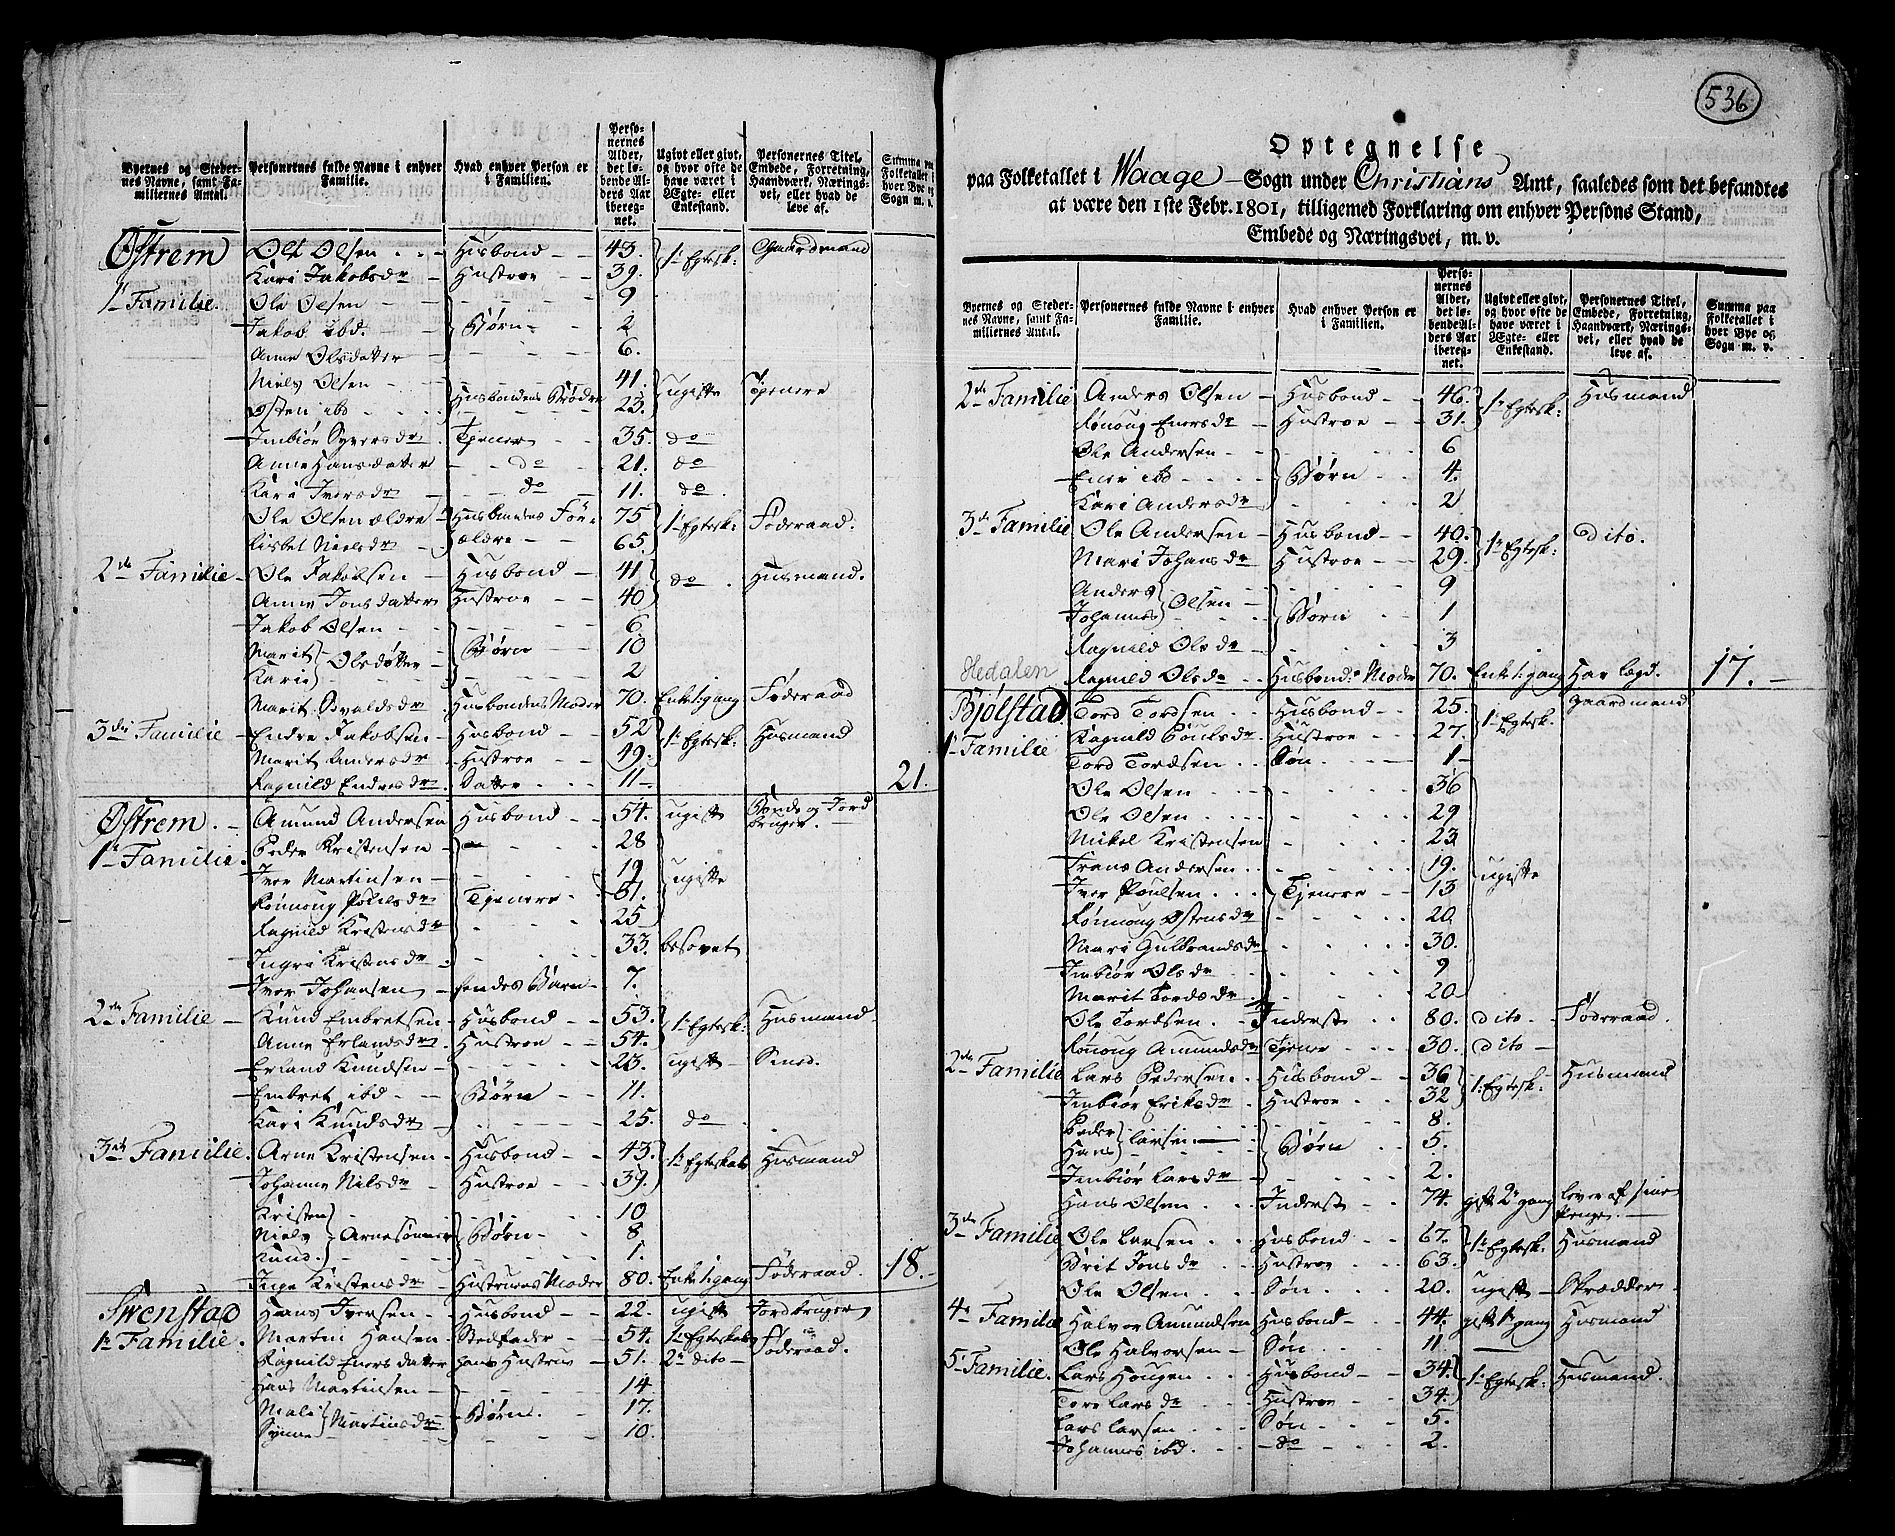 Byernes og Steder-
nes Navne, samt Fa-
miliernes Antal.
Personernes fulde Navne i enhver
Familie.
Hvad enhver Person er
i Familien.
Perso-
nernes
Alder,
det lø-
bende Al-
ders Aar
iberegnet.
Ugivt eller givt,
og hvor ofte de
have været i
Ægte- eller
Enkestand.
Personernes Titel,
Embede, Forretning,
Haandværk, Nærings-
vei, eller hvad de
leve af.
Summa paa
Folketallet i
hver Bye og
Sogn m. v.
Østrem Ole Olsen Husbond 43. 1te Egtesk: Gaardmand
Kari Jakobsdr Hustroe 39.
1te Familie. Ole Olsen 9
Jakob ibd. Børn 2
Anne Olsdatter 6.
Niels Olsen Husbondens Brødre 41. ugifte Tjenere
Østen ibd 23.
Imbiør Syversdr Tjener 35. do
Anne Hansdatter do 21. do
Kari Iversdr do 11. do
Ole Olsen ældre Husbondens For- 75 1te Egtesk: Føderaad.
Lisbet Nielsdr ældre 65.
2de Familie Ole Jakobsen Husbond 41 do Husmand.
Anne Jonsdatter Hustroe 40
Jakob Olsen 6.
Marit Olsdøttre Børn 10
Karie 2
Marit Svaldsdr Husbondens Moder 70. Enke 1 gang Føderaad
3die Familie Endre Jakobsen Husbond 52 1te Egtesk: Husmand
Marit Andersdr Hustroe 49.
Ragnild Endresdr Datter 11 21.
Østrem. Amund Andersen Husbond 54. ugift Bonde og Jord
bruger.
1te Familie. Peder Kristensen 28
Iver Martinsen 19 ugifte
Rønnoug Poulsdr Tjenere 61.
Ragnild Kristensdr 25
Ingri Kristensdr 33. besovet
Iver Johansen hendes Barn 7.
2de Familie Knud Embretsen Husbond 53. 1te Egtesk: Husmand
Anne Erlandsdr Hustroe 54.
Erland Knudsen 23. ugift Smed.
Embret ibd Børn 11.
Kari Knudsdr 25. do
3die Familie. Arne Kristensen Husbond 43. 1te Egteskab Husmand
Johanne Nilsdr Hustroe 39.
Kristen 10
Niels Arnesønner Børn 8
Knud. 1.
Inge Kristensdr Hustruens Moder 80. Enke 1 gang Føderaad. 18.
Swenstad Hans Iversen Husbond 22. ugift Jordbruger
1te Familie. Martin Hansen Stedfader 54. 1te Egteskab Føderaad.
Ragnild Enersdatter hans Hustrue 51. 2de dito
Hans Martinsen 14
Mali Martinsdr Børn. 17.
Synne 10.
536
Optegnelse
paa Folketallet i Waage Sogn under Christians Amt, saaledes som det befandtes
at være den 1ste Febr. 1801, tilligemed Forklaring om enhver Persons Stand,
Embede og Næringsvei, m. v.
Byernes og Steder-
nes Navne, samt Fa-
miliernes Antal.
Personernes fulde Navne i enhver
Familie.
Hvad enhver Person er
i Familien.
Perso-
nernes
Alder,
det lø-
bende Al-
ders Aar
iberegnet.
Ugivt eller givt,
og hvor ofte de
have været i
Ægte- eller
Enkestand.
Personernes Titel,
Embede, Forretning,
Haandværk, Nærings-
vei, eller hvad de
leve af.
Summa paa
Folketallet i
hver Bye og
Sogn m. v.
2de Familie Anders Olsen Husbond 46. 1te Egtesk: Husmand
Rønoug Enersdr Hustroe 31.
Ole Andersen 6
Ener ibd Børn 4.
Kari Andersdr 2
3die Familie Ole Andersen Husbond 40. 1te Egtesk: dito.
Mari Johansdr Hustroe 29.
Anders Olsen 9
Johannes Børn 1
Ragnild Olsdr 3
Hedalen Ragnild Olsdr Husbond:s Moder 70. Enke 1 gang Har lægd. 17.
Bjølstad. Tord Tordsen Husbond 25. 1te Egtesk. Gaardmand
1te Familie Ragnild Poulsdr Hustroe 27.
Tord Tordsen Søn 1
Ole Olsen 36
Ole Olsen 29
Mikel Kristensen 23
Frans Andersen 19.
Iver Poulsen Tjenere 13 ugifte
Rønnoug Østensdr 20.
Mari Gulbrandsdr 30.
Imbiør Olsdr 9
Marit Tordsdr 20
Ole Tordsen. Inderste 80. dito Føderaad.
Rønoug Amundsdr Tjener 30. dito
2de Familie Lars Pedersen Husbond 36 1: Egtesk: Husmand
Imbiør Eriksdr Hustroe 32
Peder Larsen 8.
Hans Børn 5.
Imbiør Larsdr 2.
Hans Olsen Inderste 74. gift 2de gang lever af sine
Penge.
3die Familie Ole Larsen Husbond 67. 1te Egtesk. Husmand
Brit Jonsdr Hustroe 63.
Ole Olsen Søn 20. ugift Skrædder
4de Familie Halvor Amundsen Husbond 44. gift 1te gang Husmand
Ole Halvorsen Søn 11
5te Familie. Lars Hougen Husbond 34. 1te Egtesk: Husmand.
Tore Larsdr Hustroe 34.
Lars Larsen Søn 5.
Johannes ibd. do 2.